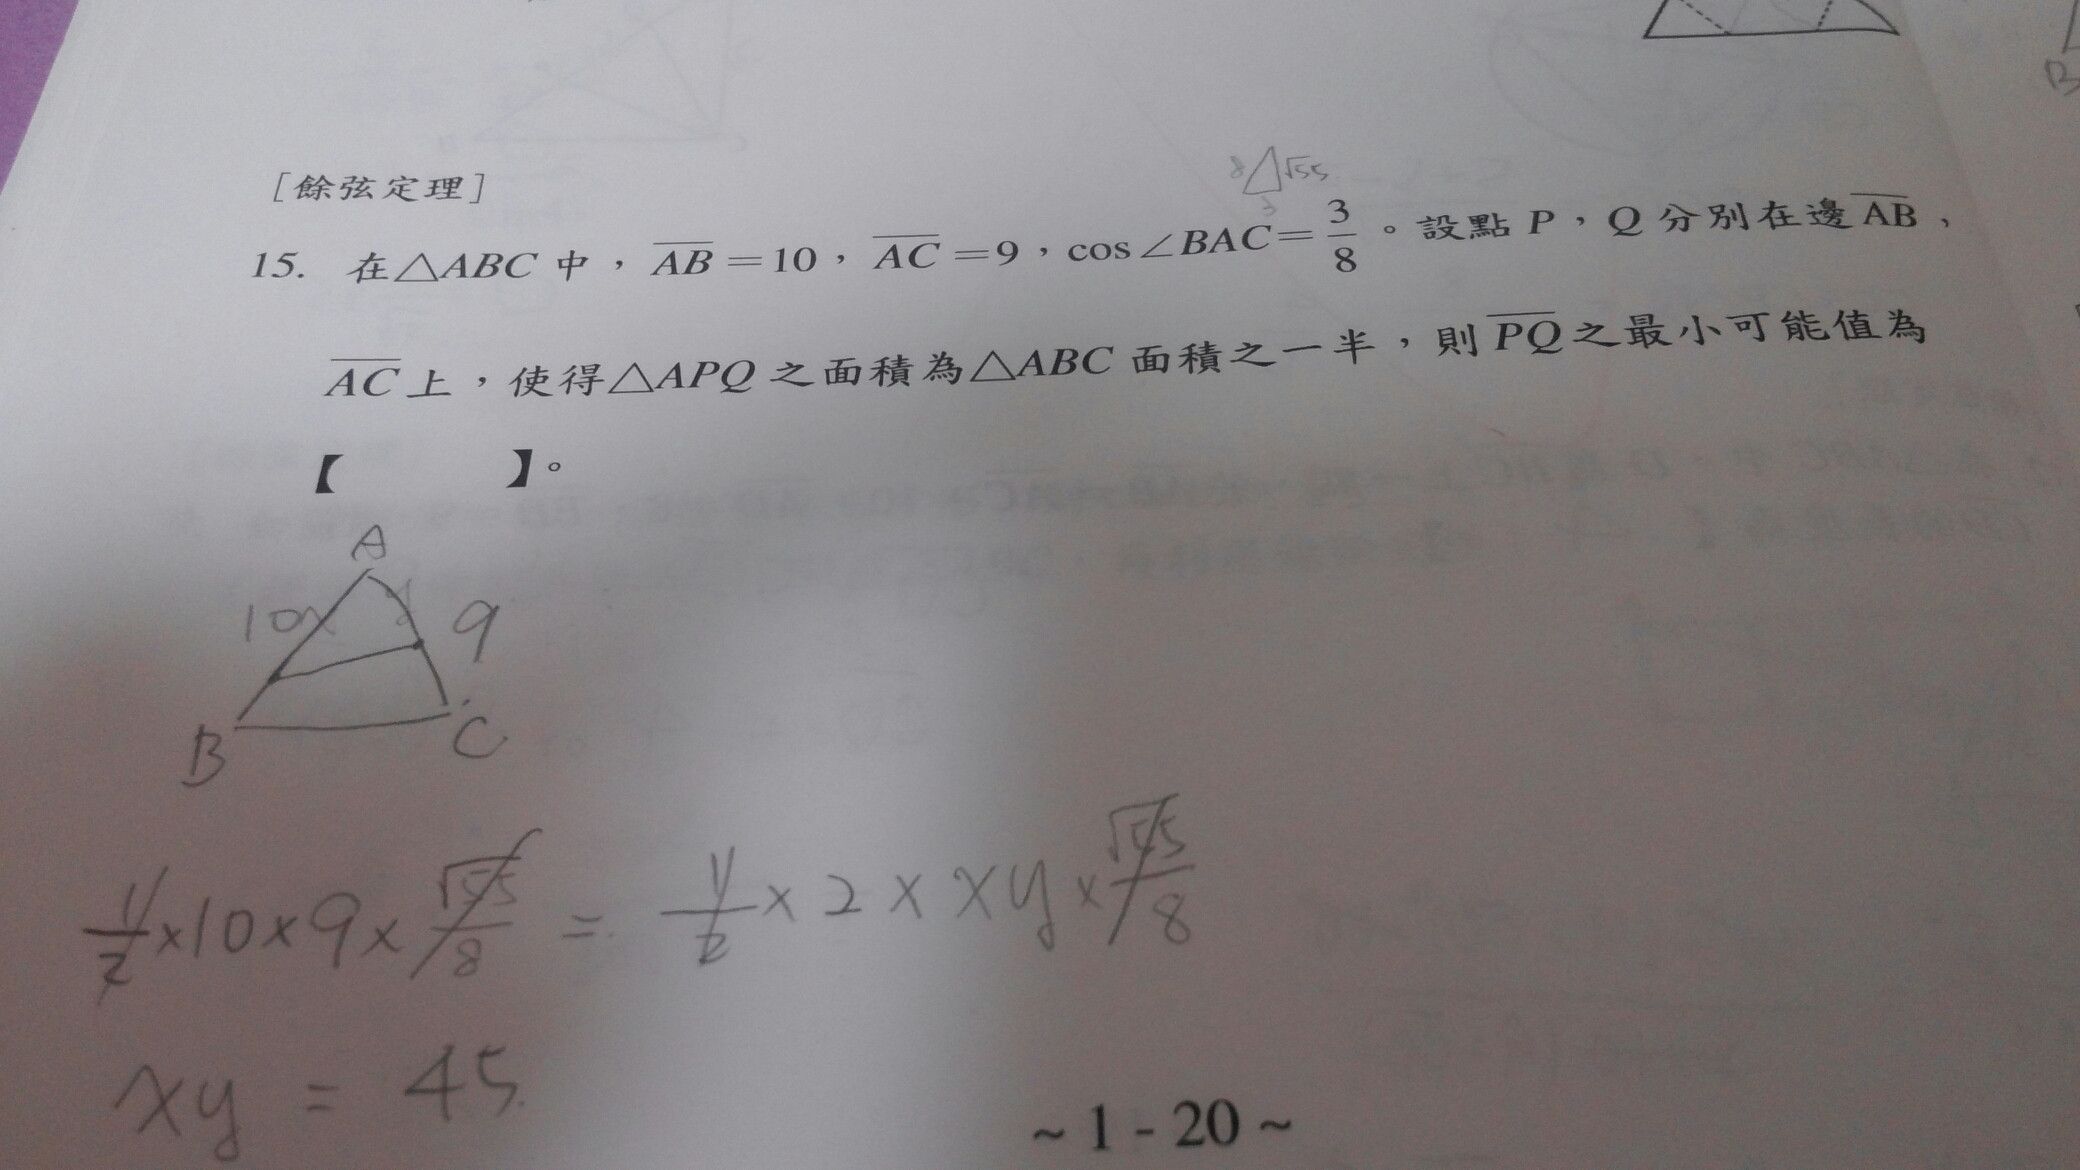 [餘弦定理]
8 √55
3
15. 在△ABC 中，AB=10，AC=9，cos∠BAC=3/8。設點 P，Q 分別在邊 AB、
AC 上，使得△APQ 之面積為△ABC 面積之一半，則 PQ 之最小可能值為
【 】。
A
10 x y 9
B C
1/2×10×9×√55/8 = 1/2×2×xy×√55/8
xy = 45
~ 1 - 20 ~